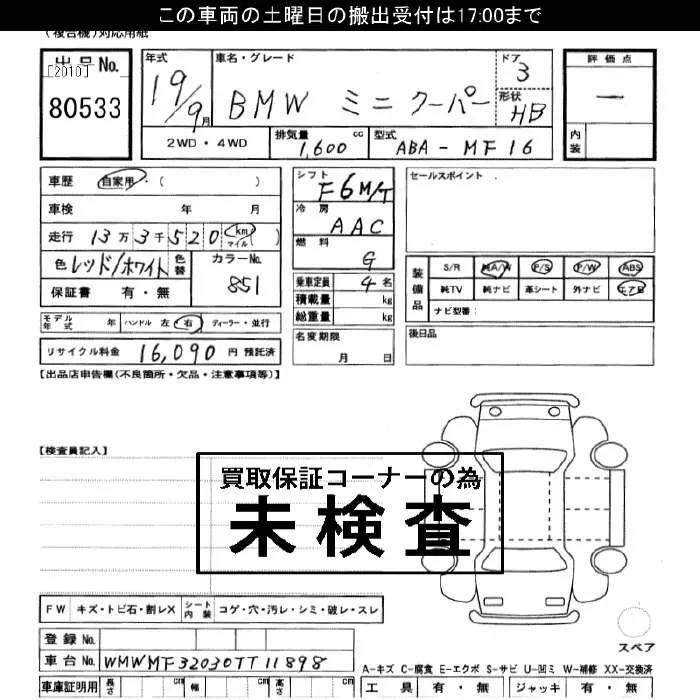 この車両の土曜日の搬出受付は17:00まで
(複合機)対応用紙
出品No.
[2010]
80533
年式
19/9月
車名・グレード
BMW ミニクーパー
ドア
3
形状
HB
2WD・4WD
排気量
1,600 cc
型式
ABA-MF16
評価点
一
内装
車歴 自家用・( )
車検 年 月
走行 13万3千520 (km マイル)
色 レッド/ホワイト
色替
カラーNo.
851
保証書 有・無
シフト
F6M/T
冷房
AAC
燃料
G
乗車定員 4名
積載量 kg
総重量 kg
名変期限
月 日
セールスポイント
装備品
S/R MA/W P/S P/W ABS
純TV 純ナビ 革シート 外ナビ エアB
ナビ型番:
後日品
モデル年式 年 ハンドル 左 右 ディーラー・並行
リサイクル料金 16,090 円 預託済
【出品店申告欄(不良箇所・欠品・注意事項等)】
【検査員記入】
買取保証コーナーの為
未検査
FW キズ・トビ石・割レX
シート内装 コゲ・穴・汚レ・シミ・破レ・スレ
登録No.
車台No. WMWMF32030TT11898
車庫証明用 長さ cm 幅 cm 高さ cm
スペア
A-キズ C-腐食 E-エクボ S-サビ U-凹ミ W-補修 XX-交換済
工具 有・無 ジャッキ 有・無